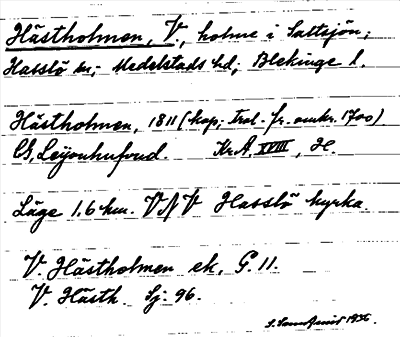 Hästholmen, V., holme i Saltsjön;
Hasslö sn; Medelstads hd; Blekinge l.
Hästholmen, 1811 (kop; Tral. fr. omkr. 1700)
CG. Leijonhufvud. Kr.A. XVIII, H.
Läge 1.6 km. VNV Hasslö kyrka.
V. Hästholmen ek, G. 11.
V. Hästh. Sj. 96.
1936